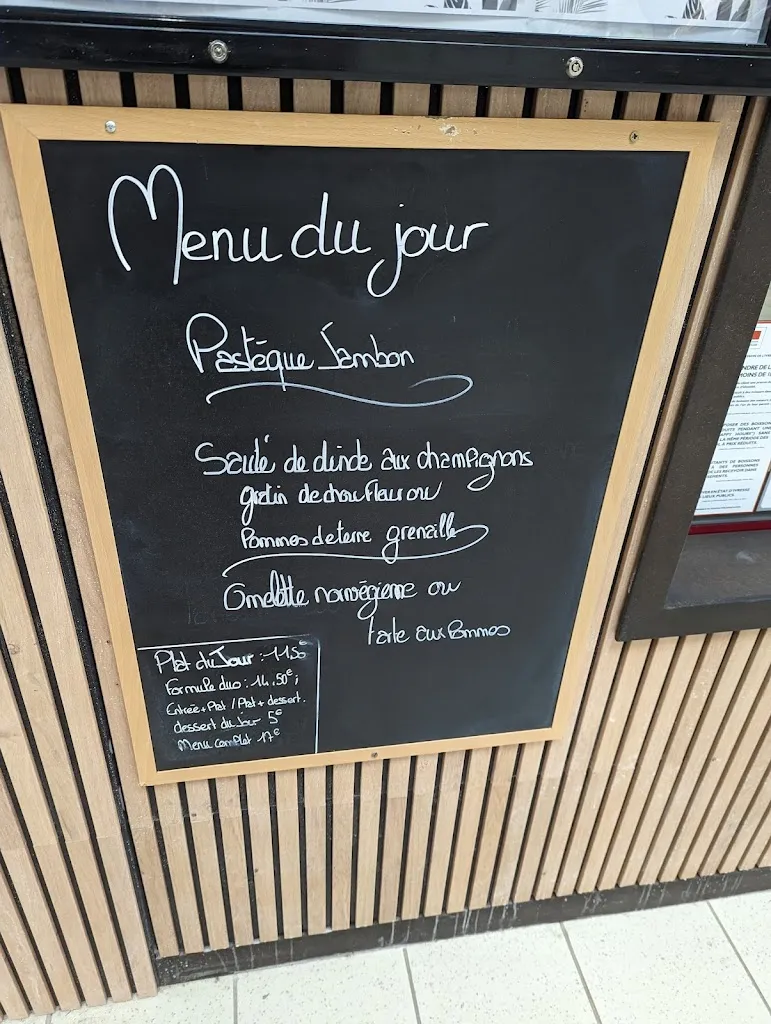 Menu du jour
Pastèque Jambon
Sauté de dinde aux champignons
gratin de chou fleur ou
Pommes de terre grenaille
Omelette norvégienne ou
tarte aux Pommes
Plat du Jour : 11.50€
Formule duo : 14,50€ ;
Entrée + Plat / Plat + dessert.
dessert du jour 5€
Menu complet 17€